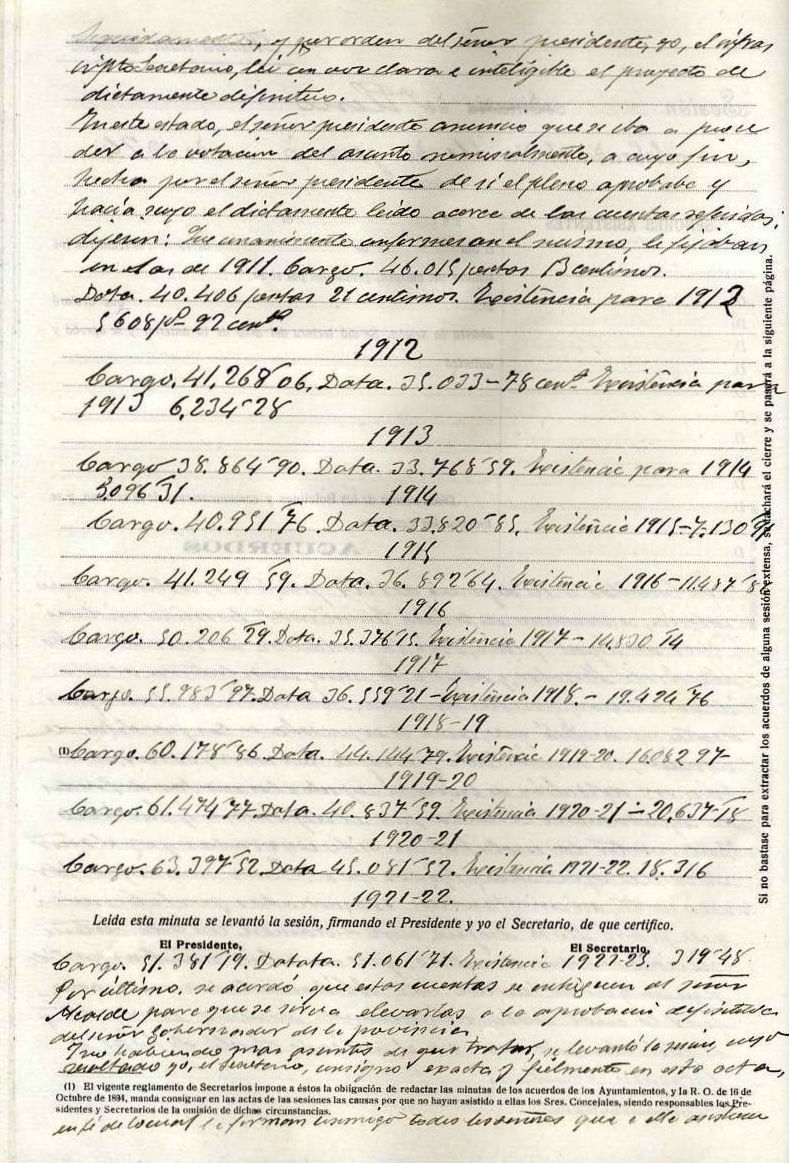 Seguidamente, y por orden del señor presidente, yo, el infras
cripto Secretario, leí en voz clara e inteligible el proyecto de
dictamente definitivo.
En este estado, el señor presidente anuncio que se iba a proce
der a la votacion del asunto nominalmente, a cuyo fin,
hecha por el señor presidente de si el pleno aprobaba y
hacía suyo el dictamente leido acerca de las cuentas referidas;
dijeron: Que unanimente conformes en el mismo, le fijaban
en las de 1911. Cargo. 46.015 pesetas 13 centimos.
Data. 40.406 pesetas 21 centimos. Existencia para 1912
5608 pts 92 cents.
1912
Cargo. 41,268´06. Data. 35.033-78 cents. Existencia para
1913 6,234´28
1913
Cargo 38.864´90. Data. 33.768´59. Existencia para 1914
5.096´31.
1914
Cargo. 40.951´76. Data. 33.820´85. Existencia 1915-7.130´91
1915
Cargo. 41.249´59. Data. 36.892´64. Existencia 1916-11.487´86
1916
Cargo. 50.206´29. Data. 35.376´15. Existencia 1917- 14,830´14
1917
Cargo. 55.983´97. Data 36.559´21-Existencia 1918.- 19.424´76
1918-19
(1) Cargo. 60.178´86 Data. 44.144´79. Existencia 1919-20. 16.082´97-
1919-20
Cargo. 61.474´77. Data. 40.837´59. Existencia 1920-21-20,637´18
1920-21
Cargo. 63.397´52. Data 45.081´52. Existencia 1921-22. 18.316
1921-22.
Leida esta minuta se levantó la sesión, firmando el Presidente y yo el Secretario, de que certifico.
El Presidente, El Secretario,
Cargo. 51.381´19. Datata. 51.061´71. Existencia 1922-23. 319´48
Por último. se acordó que estas cuentas se entreguen al señor
Alcalde para que se sirva elevarlas a la aprobacion definitiva
del señor Gobernador de la provincia
Y no habiendo mas asuntos de que tratar, se levantó la sesion, cuyo
resultado yo, el Secretario, consigno exacta y fielmente en esta acta,
(1) El vigente reglamento de Secretarios impone a éstos la obligación de redactar las minutas de los acuerdos de los Ayuntamientos, y la R. O. de 16 de
Octubre de 1894, manda consignar en las actas de las sesiones las causas por que no hayan asistido a ellas los Sres. Concejales, siendo responsables los Pre-
sidentes y Secretarios de la omisión de dichas circunstancias.
en fé de lo cual la firman conmigo todos los señores que a ella asisten
Si no bastase para extractar los acuerdos de alguna sesión extensa, se tachará el cierre y se pasará a la siguiente página.